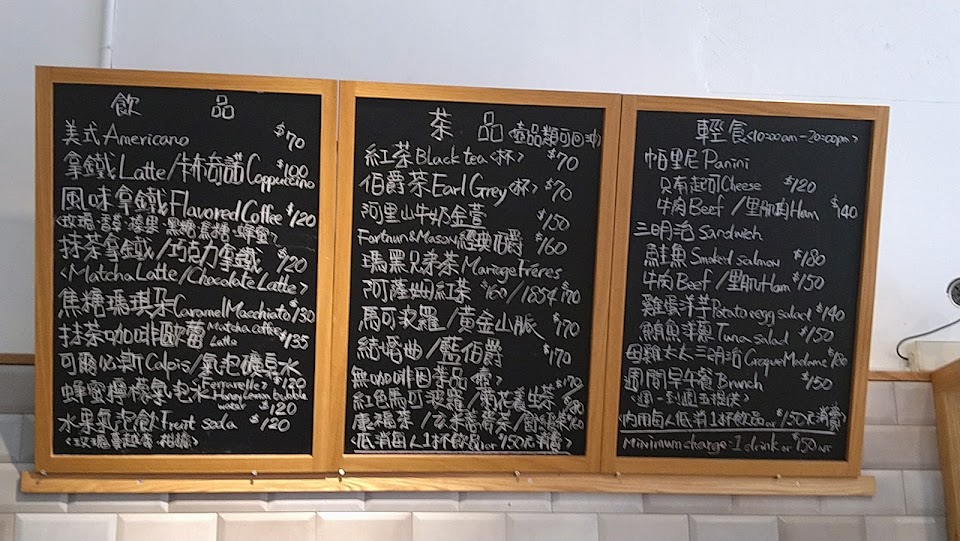 飲 品
美式 Americano $70
拿鐵 Latte/卡布奇諾 Cappuccino $100
風味拿鐵 Flavored Coffee $120
抹茶拿鐵/巧克力拿鐵 $120
<Matcha Latte/Chocolate Latte>
焦糖瑪琪朵 Caramel Macchiato $130
抹茶咖啡歐蕾 Matcha coffee Latte $135
可爾必斯 Calpis/氣泡礦泉水 Ferrarelle> $120
蜂蜜檸檬氣泡水 Honey Lemon bubble water $120
水果氣泡飲 Fruit soda $120
茶 品 (壺品類可回沖)
紅茶 Black tea <杯> $70
伯爵茶 Earl Grey <杯> $70
阿里山牛奶金萱 $150
Fortnum & Mason 經典伯爵 $160
瑪黑兄弟茶 Mariage Frères
阿薩姆紅茶 $160/1854 $170
馬可波羅/黃金山脈 $170
結婚曲/藍伯爵 $170
無咖啡因茶品<壺> $170
紅色馬可波羅/
<低消每人1杯飲品 or 150元消費>
輕食 <10:00am-20:00pm>
帕里尼 Panini
只有起司 Cheese $120
牛肉 Beef/里肌肉 Ham $140
三明治 Sandwich
鮭魚 Smoked salmon $180
牛肉 Beef/里肌 Ham $150
雞蛋洋芋 Potato egg salad $140
鮪魚洋蔥 Tuna salad $150
母親太太三明治 Croque Madame $180
週間早午餐 Brunch $150
<週一到週五提供>
<內用每人低消1杯飲品 or $150元消費>
Minimum charge-1 drink or $150 NT